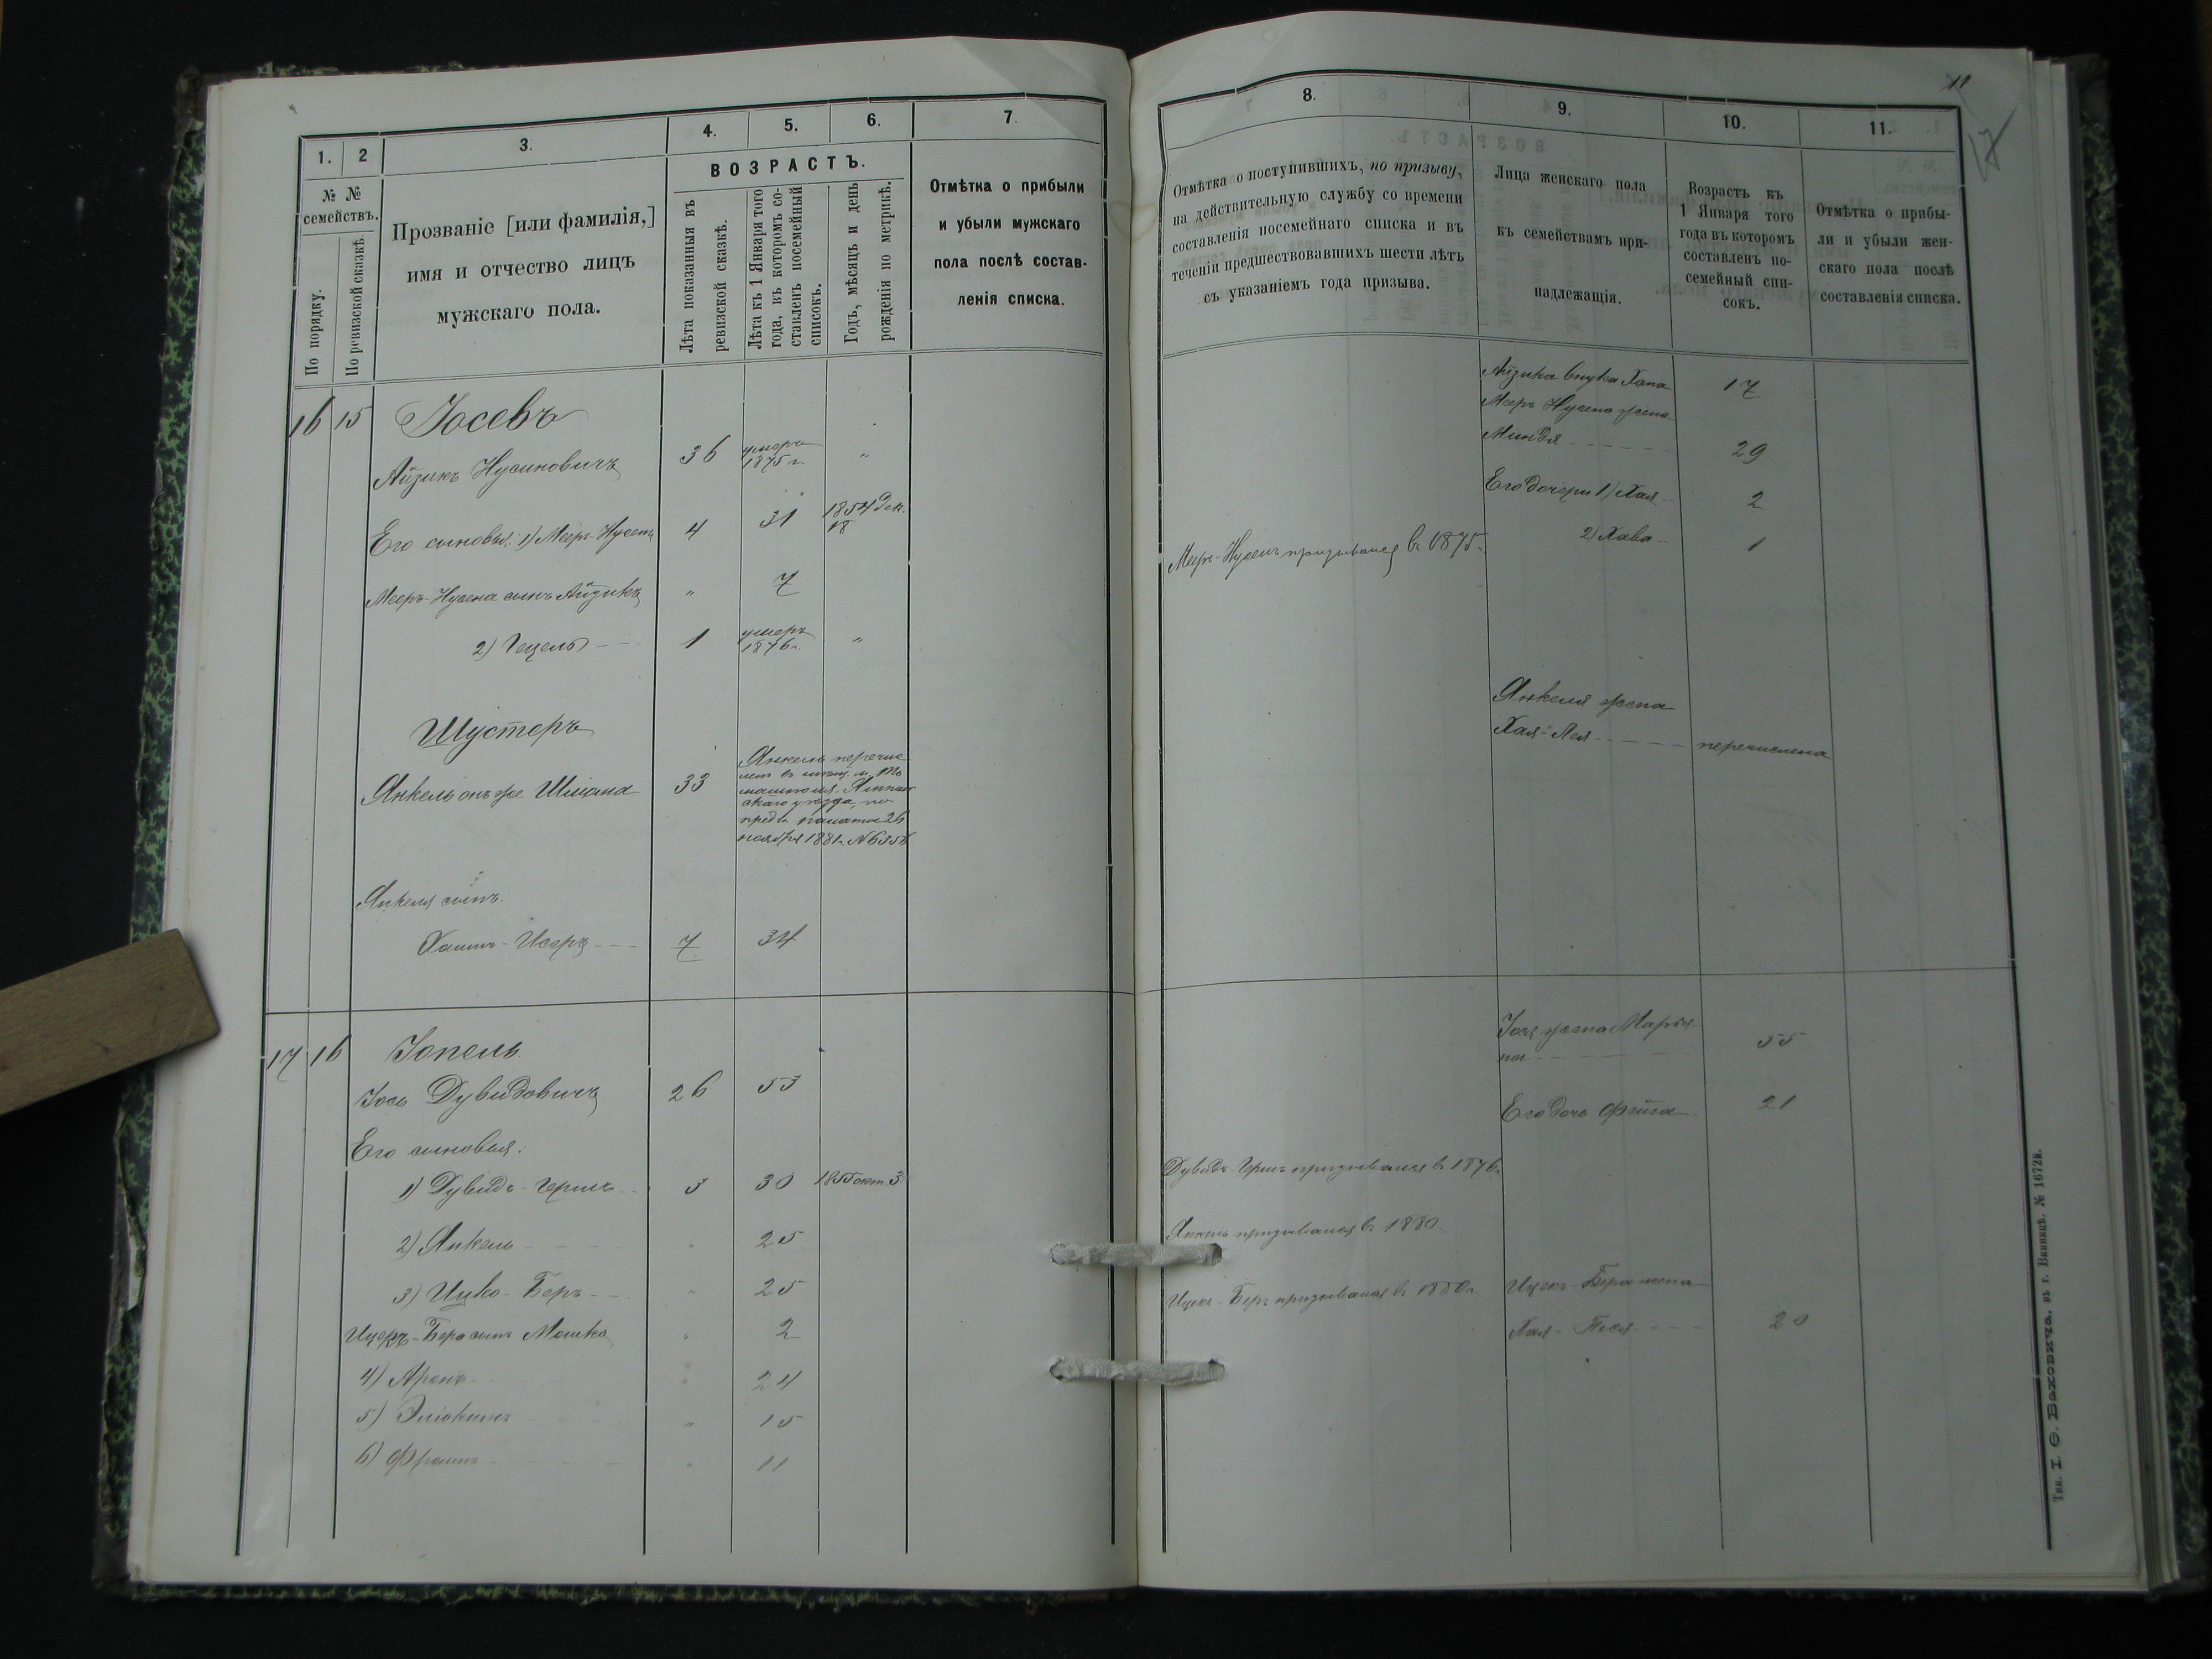 1. 2 3. 4. 5. 6. 7.
№ №
семействъ.
По порядку.
По ревизской сказкѣ.
Прозваніе [или фамилія,]
имя и отчество лицъ
мужскаго пола.
ВОЗРАСТЪ.
Лѣта показанныя въ
ревизской сказкѣ.
Лѣта къ 1 Января того
года, въ которомъ со-
ставленъ посемейный
списокъ.
Годъ, мѣсяцъ и день
рожденія по метрикѣ.
Отмѣтка о прибыли
и убыли мужскаго
пола послѣ состав-
ленія списка.
16 15 Іосевъ
Айзикъ Нусиновичъ 36 умеръ 1875 г. "
Его сыновья: 1) Меер-Нусенъ 4 31 1854 Дек. 18
Меер-Нусена сынъ Айзикъ " 7
2) Гецель 1 умеръ 1876 г. "
Шустеръ
Янкель онъ же Шмана 33
Янкель перечис-
ленъ въ мѣщ. м.
скаго уѣзда, по
предп. палаты 26
ноября 1881 г. № 6356
Янкеля сынъ.
Хаимъ-Исеръ 7 34
17 16 Іопель
Іось Дувидовичъ 26 53
Его сыновья:
1) Дувидъ-Герш 3 30 1855 окт. 3
2) Янкель " 25
3) Ицко-Беръ " 25
Ицекъ-Бера сынъ Мошко " 2
4) Аронъ " 24
5) Эліокимъ " 15
6) Фроимъ " 11
11
17
8. 9. 10. 11.
Отмѣтка о поступившихъ, по призыву,
на дѣйствительную службу со времени
составленія посемейнаго списка и въ
теченіи предшествовавшихъ шести лѣтъ
съ указаніемъ года призыва.
Лица женскаго пола
къ семействамъ при-
надлежащія.
Возрастъ къ
1 Января того
года въ которомъ
составленъ по-
семейный спи-
сокъ.
Отмѣтка о прибы-
ли и убыли жен-
скаго пола послѣ
составленія списка.
Айзика внука Хана 17
Меер Нусена жена
Миндля 29
Его дочери 1) Хая 2
2) Хава 1
Меер-Нусенъ призывался въ 1875 г.
Янкеля жена
Хая-Лея перечислена
Іося жена Марья-
на 55
Его дочь Фейга 21
Дувидъ Гершъ призывался въ 1876 г.
Янкель призывался въ 1880.
Ицекъ-Беръ призывался въ 1880 г. Ицекъ-Бера жена
Хая-Песя 20
Тип. І. Ѳ. Баховича, въ г. Винницѣ. № 1672й.